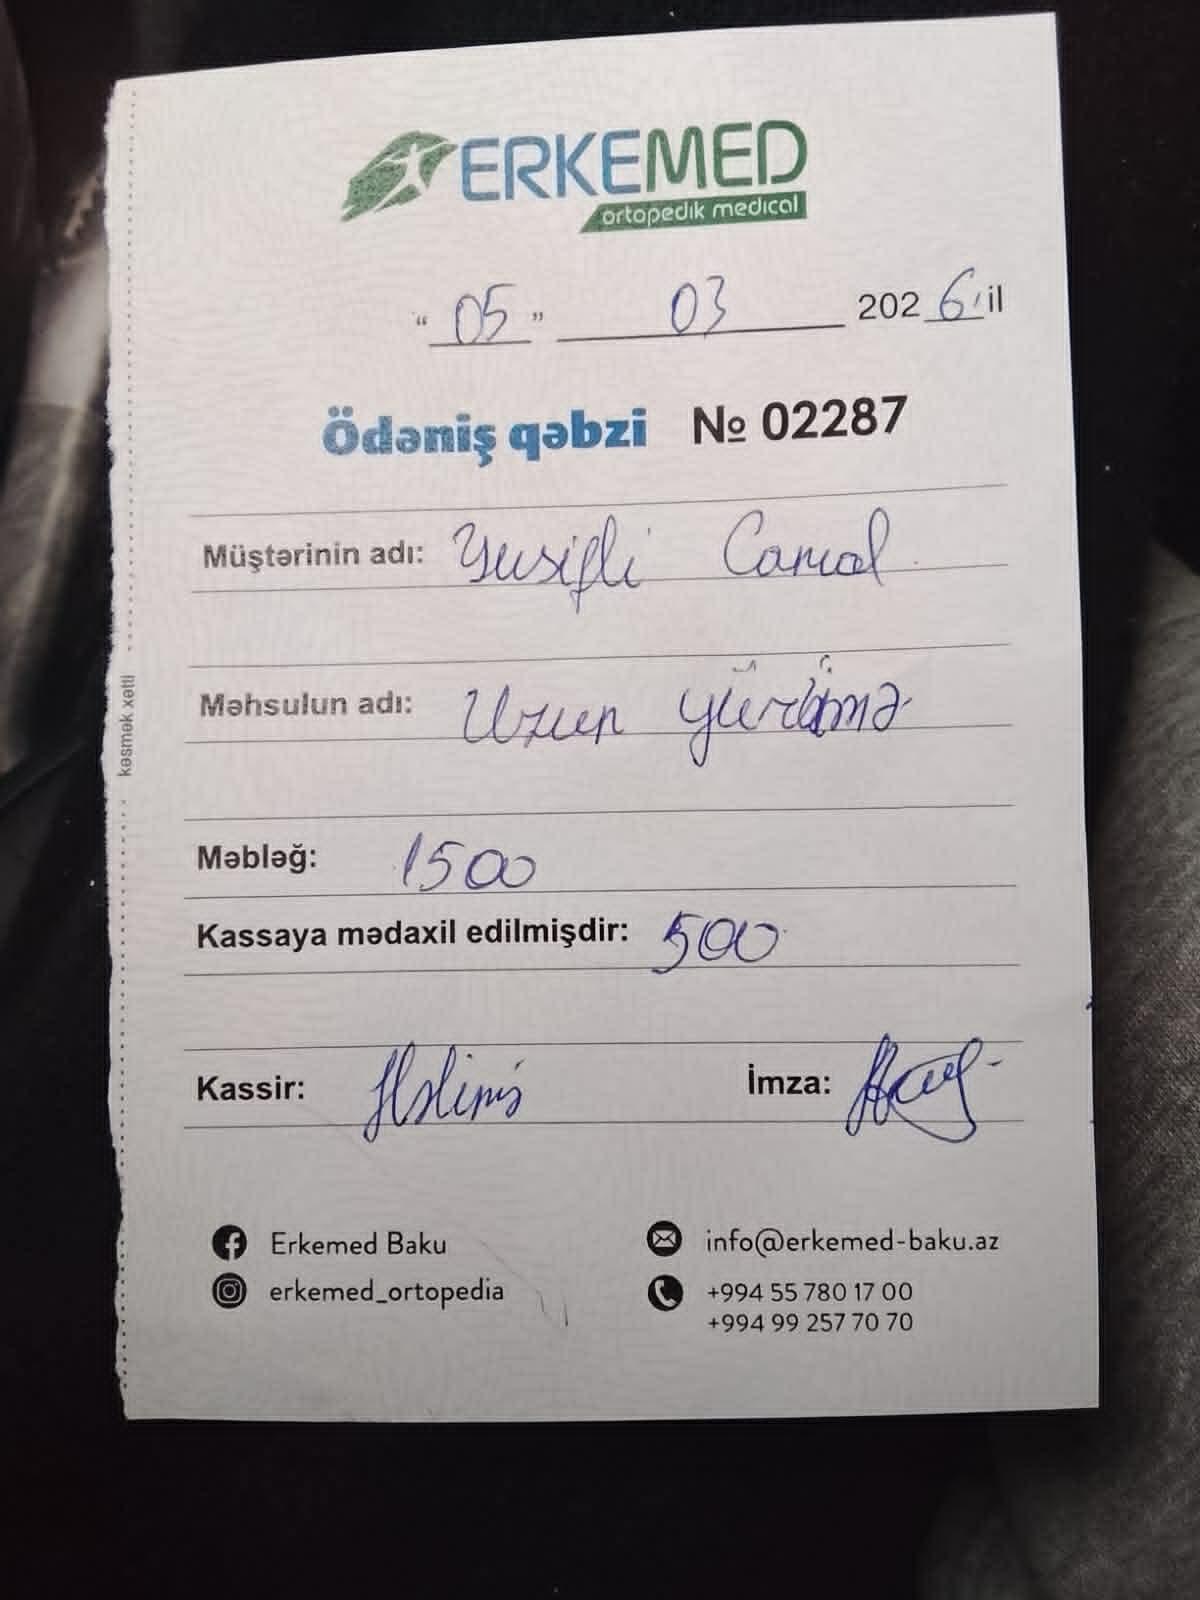 ERKEMED
ortopedik medical
"05" 03 2026 il
Ödəniş qəbzi № 02287
Müştərinin adı: Yusifli Camal
Məhsulun adı: Uzun yürümə
Məbləğ: 1500
Kassaya mədaxil edilmişdir: 500
Kassir:
İmza:
kəsmək xətti
Erkemed Baku
erkemed_ortopedia
info@erkemed-baku.az
+994 55 780 17 00
+994 99 257 70 70